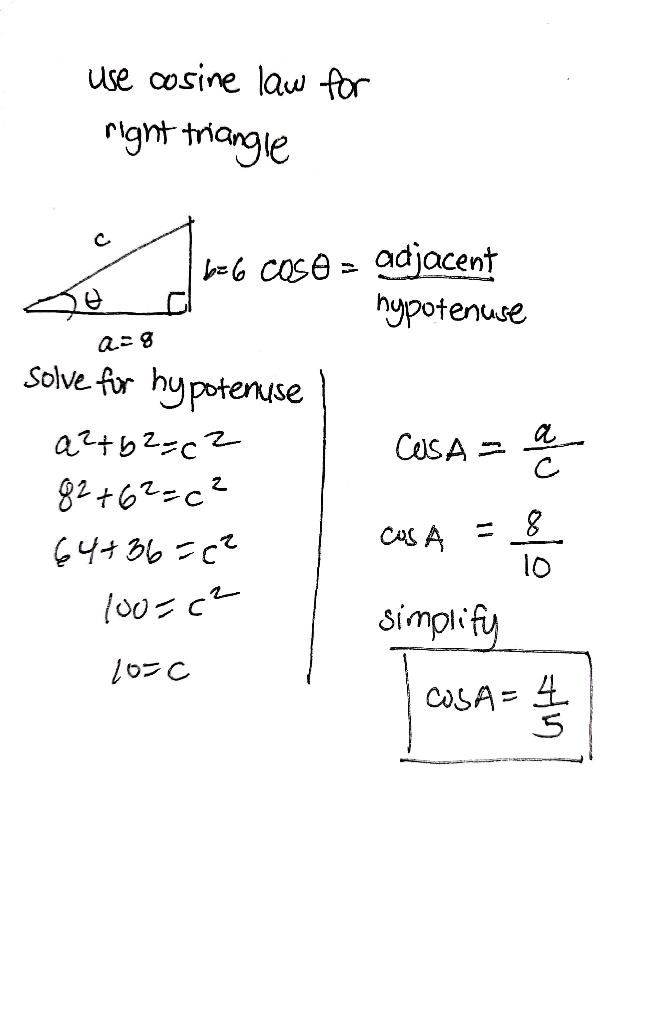 use cosine law for
right triangle
c
b=6 cosθ = adjacent
hypotenuse
θ
a=8
Solve for hypotenuse
a²+b²=c²
8²+6²=c²
64+36=c²
100=c²
10=c
cosA = a
c
cos A = 8
10
simplify
cosA= 4
5